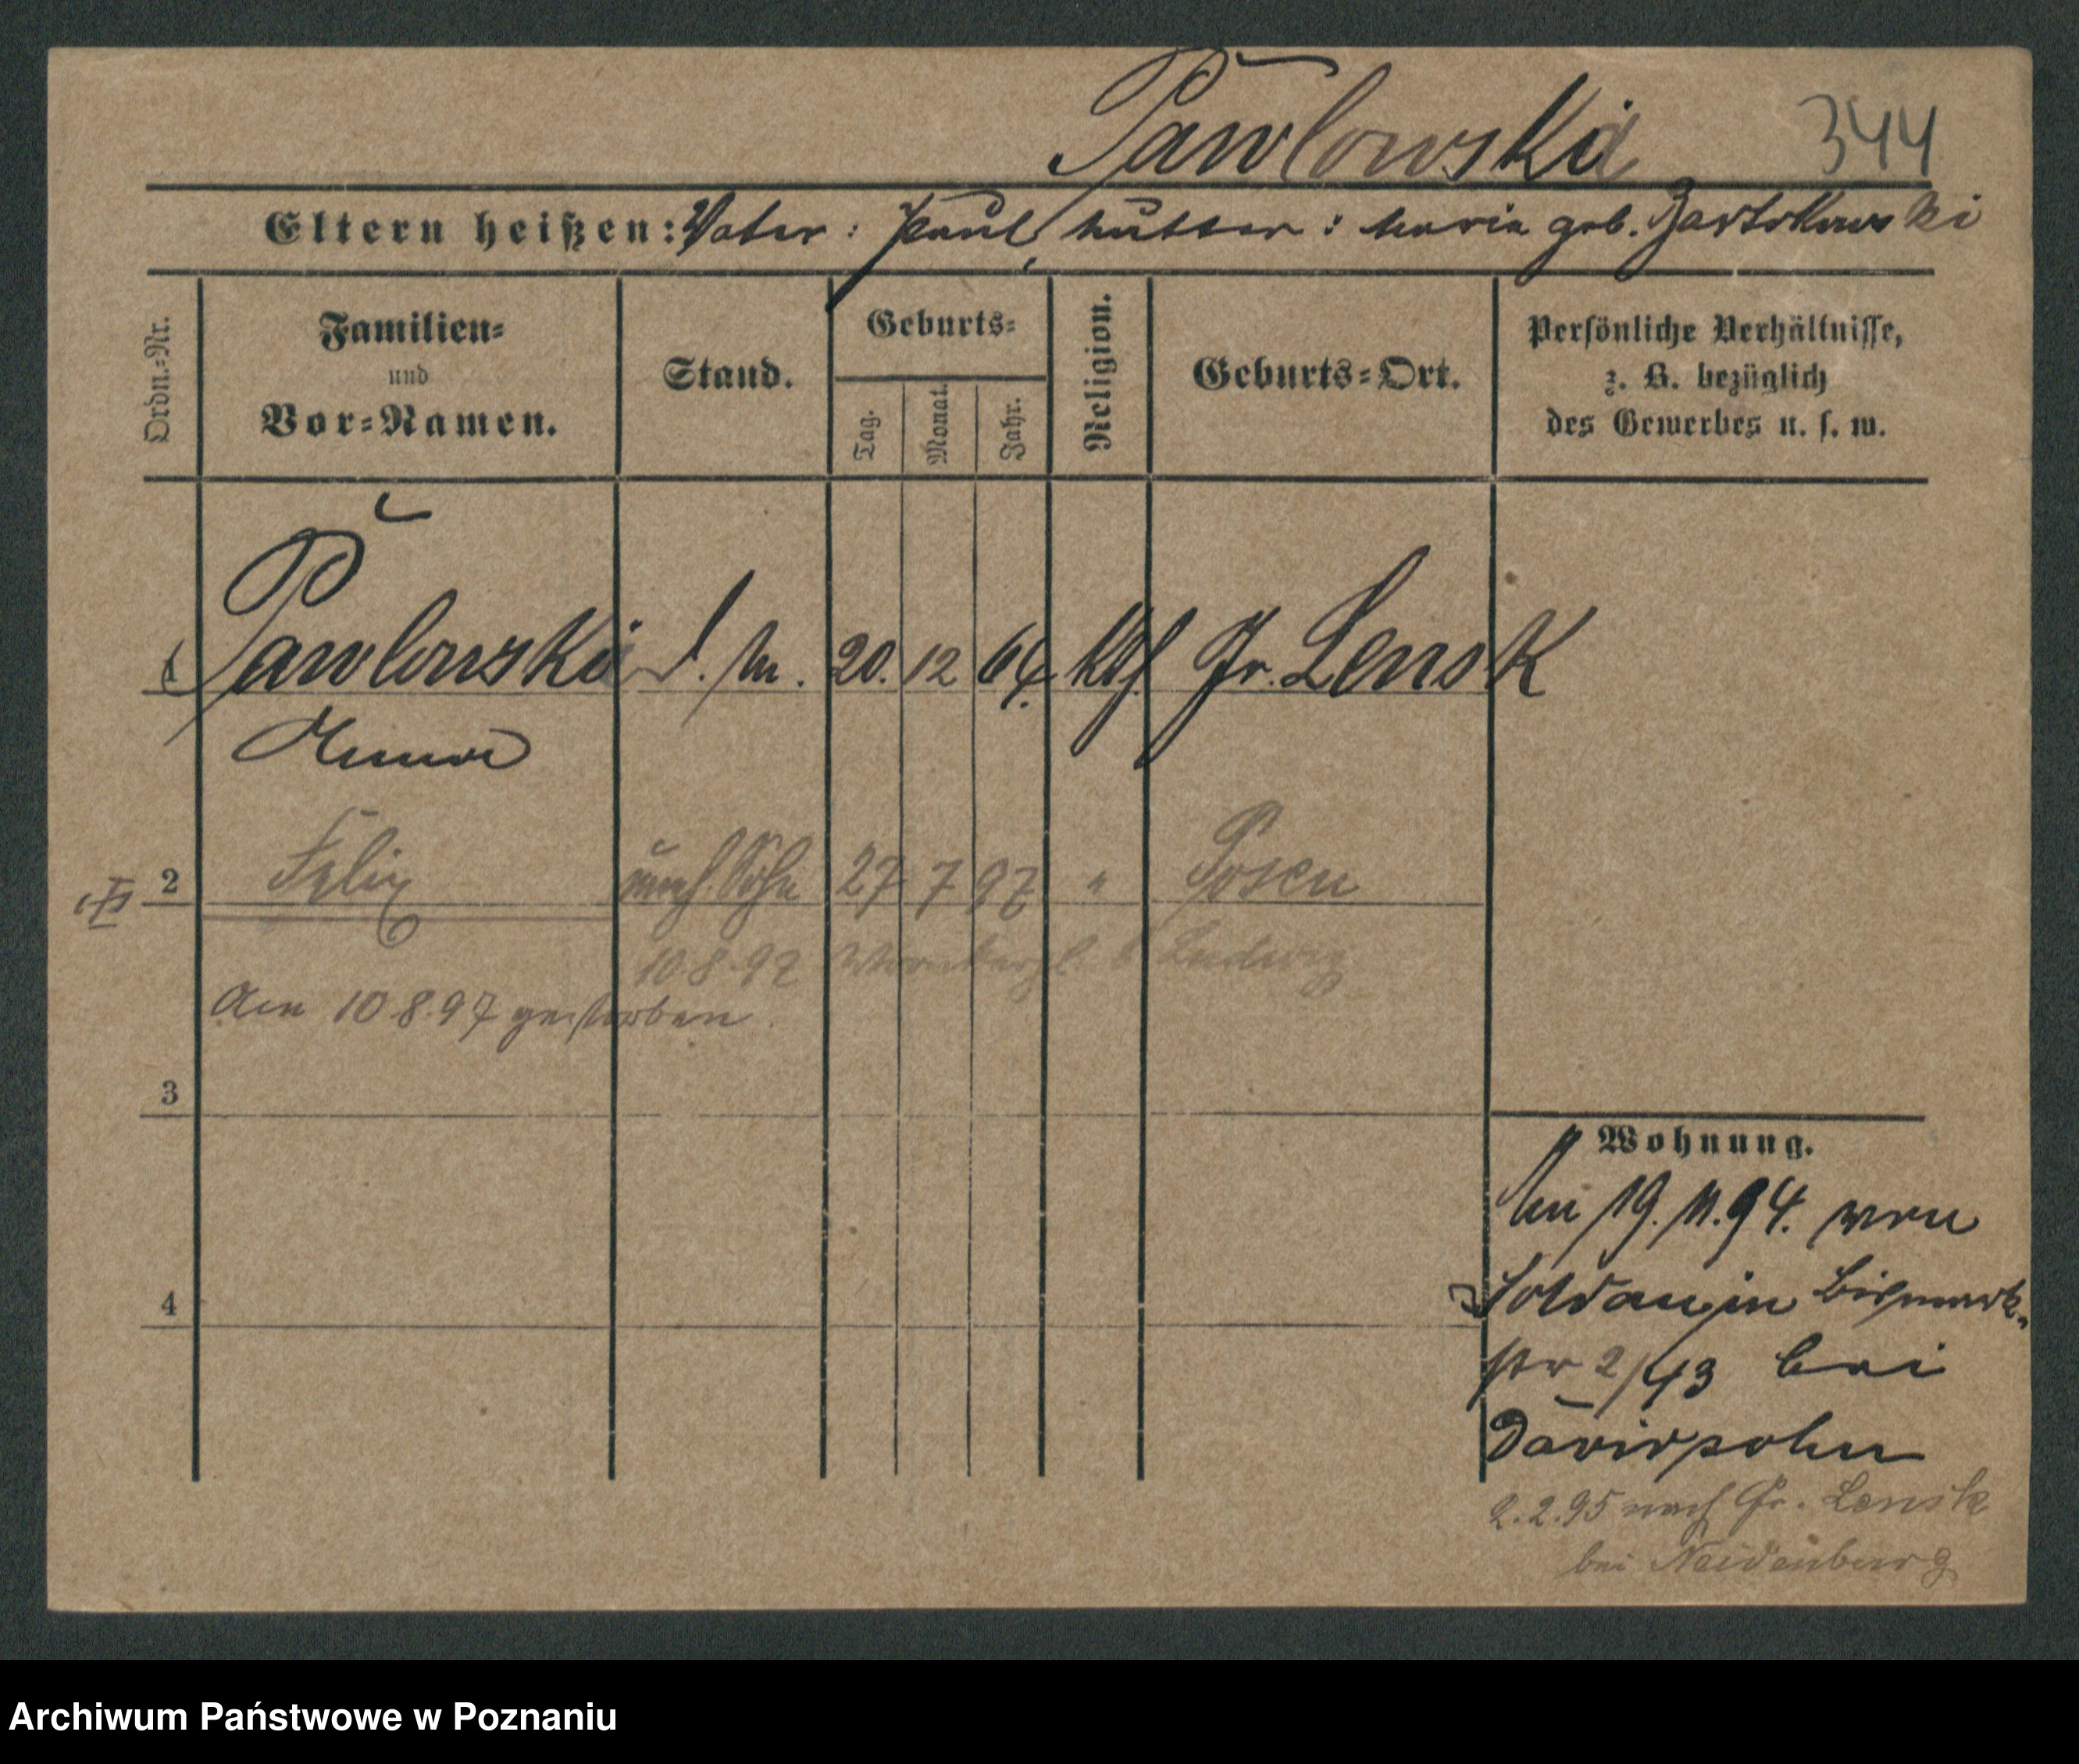 Pawlowska
344
Eltern heißen: Vater: Paul, Mutter: Maria geb. Bartkowski
Ordn.-Nr.
Familien-
und
Vor-Namen.
Stand.
Geburts-
Tag.
Monat.
Jahr.
Religion.
Geburts-Ort.
Persönliche Verhältnisse,
z. B. bezüglich
des Gewerbes u. s. w.
1 Pawlowska d. M. 20. 12 64. kth Gr. Lensk
Anna
2 Felix unehl. Sohn 27 7 97 " Posen
10.8.97 Ludwig
Am 10.8.97 gestorben.
3
4
Wohnung.
Am 19.11.94. von
Soldau in Bismark-
str 2/43 bei
Davidsohn
2.2.95 nach Gr. Lensk
bei Neidenburg
Archiwum Państwowe w Poznaniu